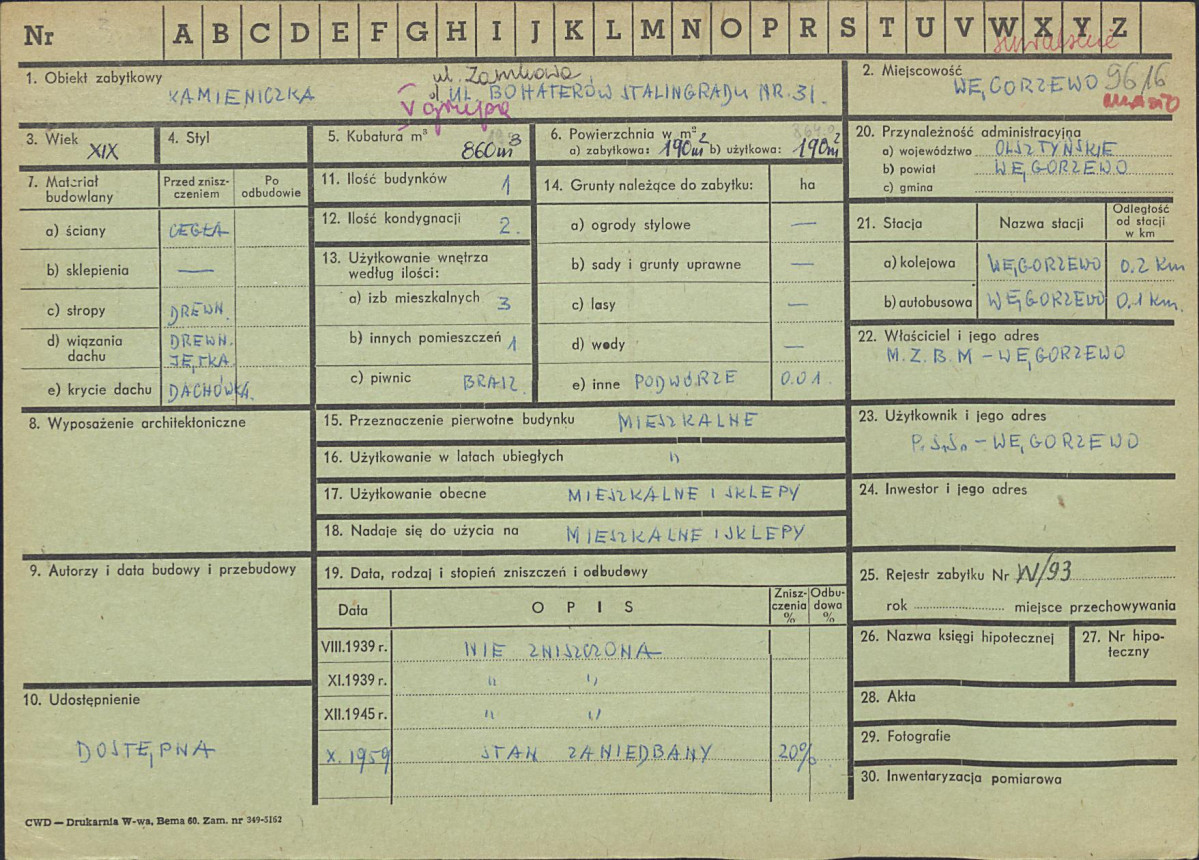 Nr A B C D E F G H I J K L M N O P R S T U V W X Y Z
suwalskie
1. Obiekt zabytkowy
ul. Zamkowa
KAMIENICZKA
UL. BOHATERÓW STALINGRADU NR. 31.
V grupa
2. Miejscowość
WĘGORZEWO 9616
miasto
3. Wiek XIX
4. Styl
5. Kubatura m³
860 m³
6. Powierzchnia w m²
a) zabytkowa: 190 m² b) użytkowa: 190 m²
20. Przynależność administracyjna
a) województwo OLSZTYŃSKIE
b) powiat WĘGORZEWO
c) gmina
7. Materiał budowlany
Przed zniszczeniem
Po odbudowie
a) ściany CEGŁA
b) sklepienia —
c) stropy DREWN.
d) wiązania dachu DREWN. JĘTKA.
e) krycie dachu DACHÓWKA.
11. Ilość budynków 1
12. Ilość kondygnacji 2.
13. Użytkowanie wnętrza według ilości:
a) izb mieszkalnych 3
b) innych pomieszczeń 1
c) piwnic BRAK.
14. Grunty należące do zabytku: ha
a) ogrody stylowe —
b) sady i grunty uprawne —
c) lasy —
d) wody —
e) inne PODWÓRZE 0.01.
21. Stacja
Nazwa stacji
Odległość od stacji w km
a) kolejowa WĘGORZEWO 0.2 km
b) autobusowa WĘGORZEWO 0.1 km.
22. Właściciel i jego adres
M.Z.B.M – WĘGORZEWO
8. Wyposażenie architektoniczne
15. Przeznaczenie pierwotne budynku MIESZKALNE
16. Użytkowanie w latach ubiegłych "
17. Użytkowanie obecne MIESZKALNE I SKLEPY
18. Nadaje się do użycia na MIESZKALNE I SKLEPY
23. Użytkownik i jego adres
P.S.S. – WĘGORZEWO
24. Inwestor i jego adres
9. Autorzy i data budowy i przebudowy
19. Data, rodzaj i stopień zniszczeń i odbudowy
Data
OPIS
Zniszczenia %
Odbudowa %
VIII.1939 r. NIE ZNISZCZONA
XI.1939 r. " "
XII.1945 r. " "
X. 1959 STAN ZANIEDBANY 20%
25. Rejestr zabytku Nr W/93
rok miejsce przechowywania
26. Nazwa księgi hipotecznej
27. Nr hipoteczny
10. Udostępnienie
DOSTĘPNA
28. Akta
29. Fotografie
30. Inwentaryzacja pomiarowa
CWD — Drukarnia W-wa, Bema 60. Zam. nr 349-5162